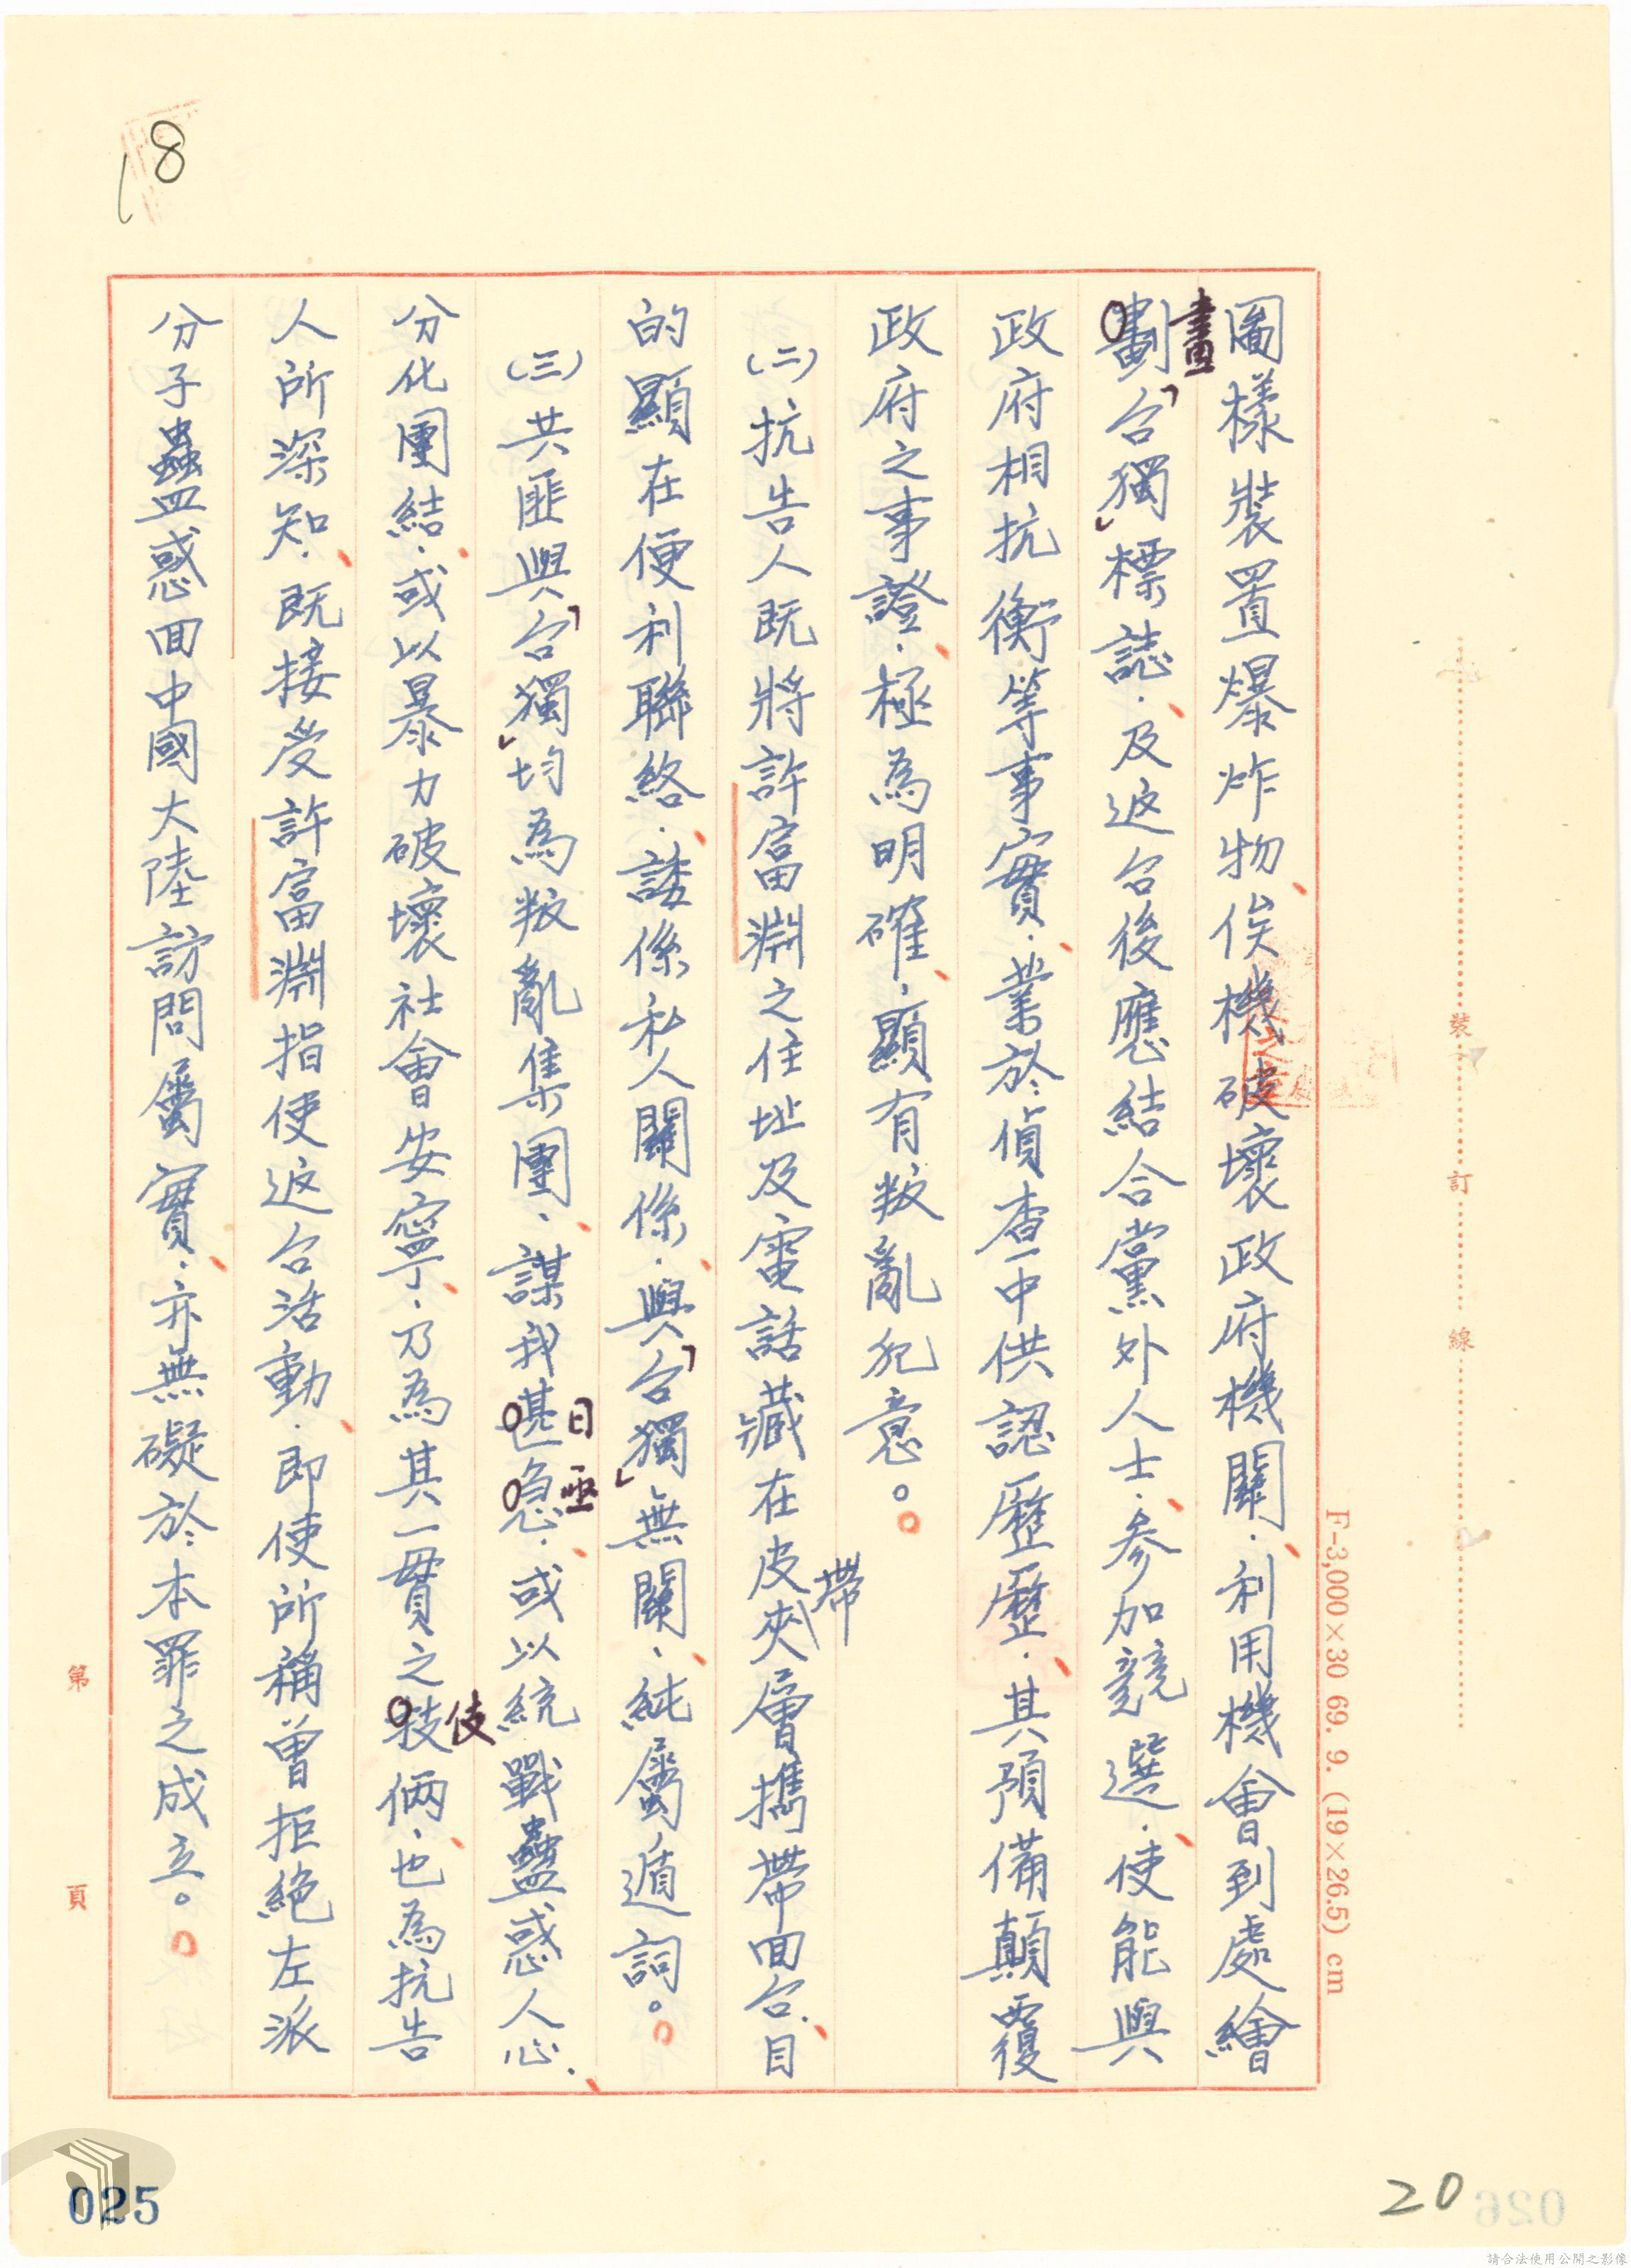 18
圖樣裝置爆炸物俟機破壞政府機關，利用機會到處繪
畫
劃「台獨」標誌，及返台後應結合黨外人士，參加競選，使能與
政府相抗衡等事實，業於偵查中供認歷歷，其預備顛覆
政府之事證，極為明確，顯有叛亂犯意。
㈡抗告人既將許富淵之住址及電話藏在皮夾層攜帶回台，目
帶
的顯在便利聯絡，諉係私人關係，與「台獨」無關，純屬遁詞。
㈢共匪與「台獨」均為叛亂集團，謀我甚急，或以統戰蠱惑人心，
日亟
分化團結，或以暴力破壞社會安寧，乃為其一貫之技倆，也為抗告
伎
人所深知，既接受許富淵指使返台活動，即使所稱曾拒絕左派
分子蠱惑回中國大陸訪問屬實，亦無礙於本罪之成立。
裝
訂
線
F-3,000×30 69. 9. (19×26.5) cm
第 頁
025
20
026
請合法使用公開之影像